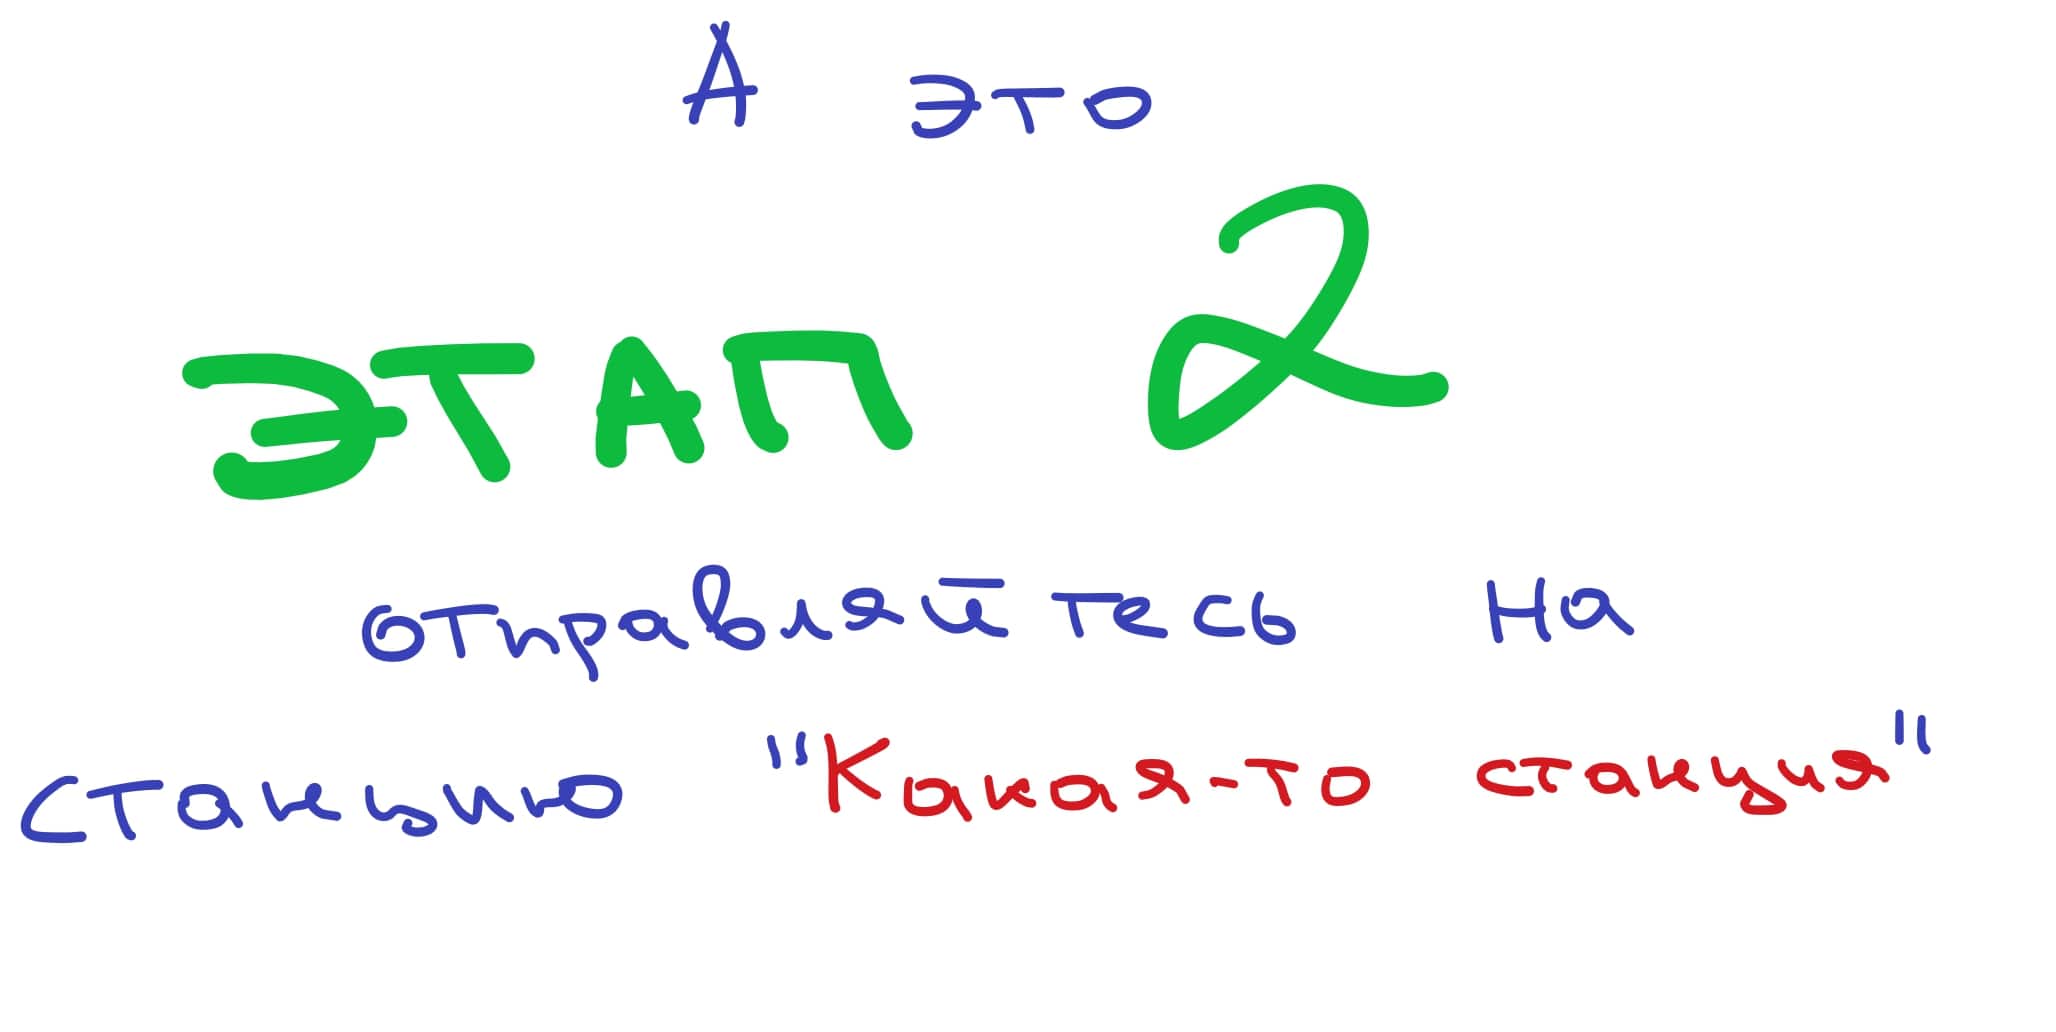 А это
ЭТАП 2
отправляйтесь на
станцию "Какая-то станция"